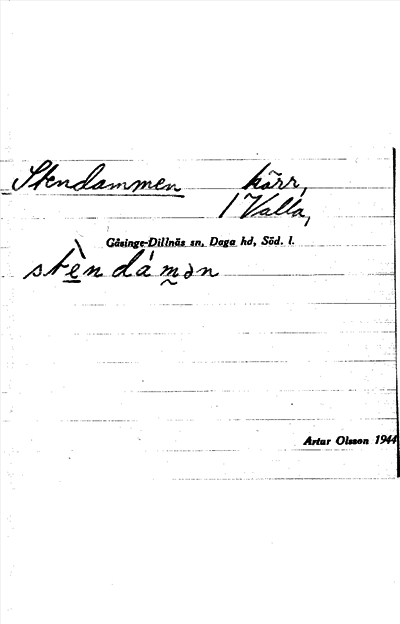 Stendammen kärr,
/ Valla,
Gåsinge-Dillnäs sn, Daga hd, Söd. l.
stèn dámən
Artur Olsson 1944